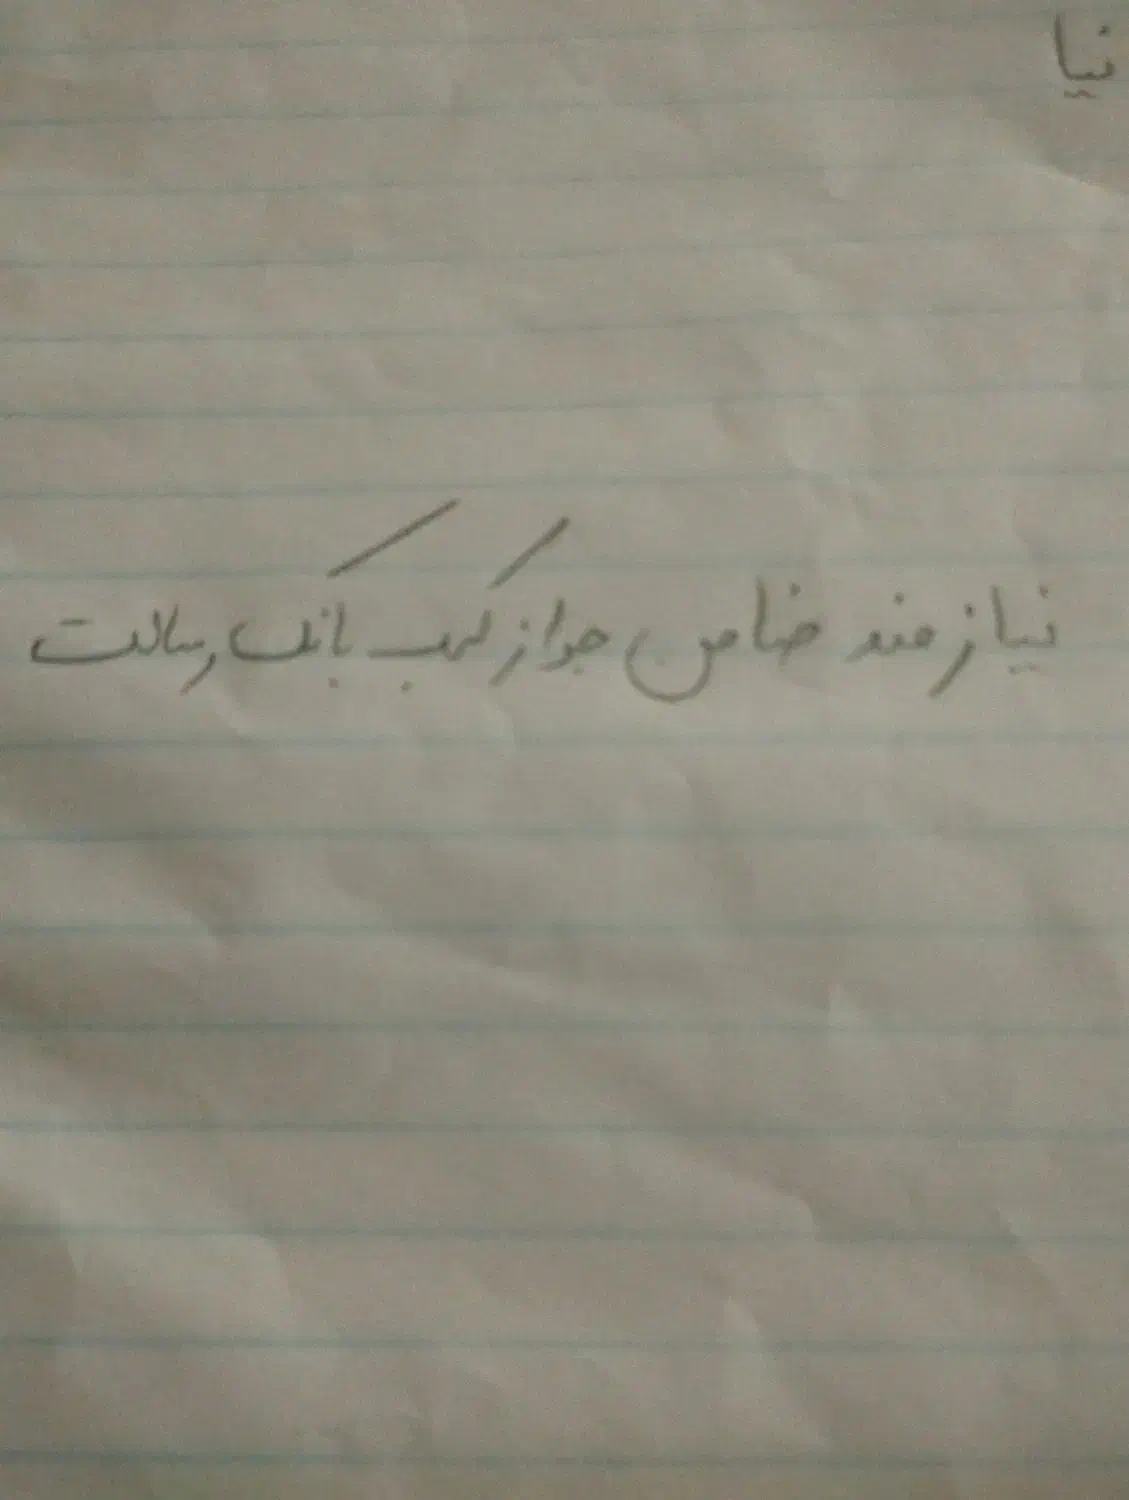 نیا
نیازمند ضامن جواز کسب بانک رسالت